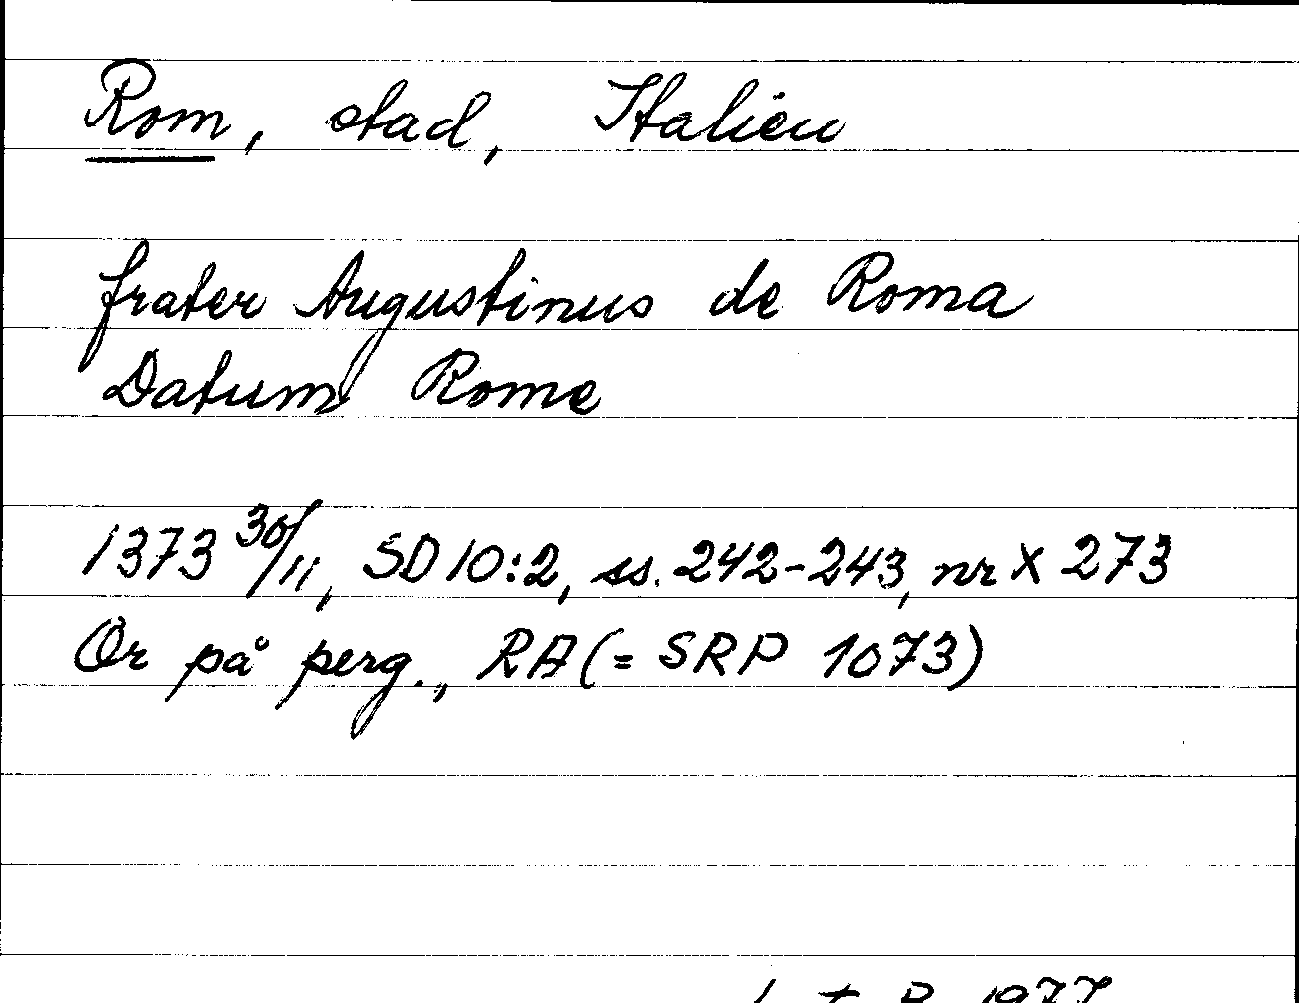 Rom, stad, Italien
frater Augustinus de Roma
Datum Rome
1373 30/11, SD 10:2, ss. 242-243, nr X 273
Or på perg., RA (= SRP 1073)
1977